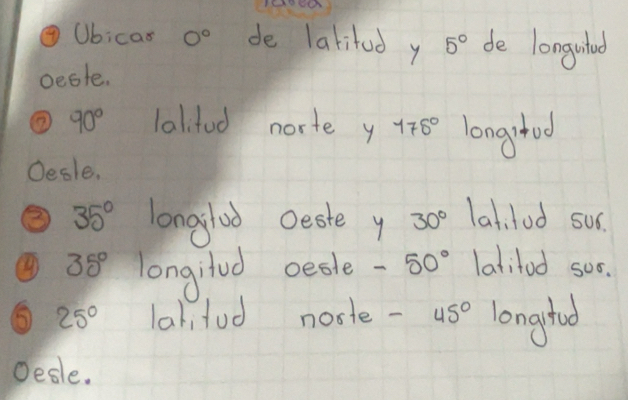 Tarea
1 Ubicar 0° de latitud y 5° de longuitud
oeste.
2 90° latitud norte y 175° longitud
Oeste.
3 35° longitud Oeste y 30° latitud sur.
4 35° longitud oeste - 50° latitud sur.
5 25° latitud norte - 45° longitud
Oeste.